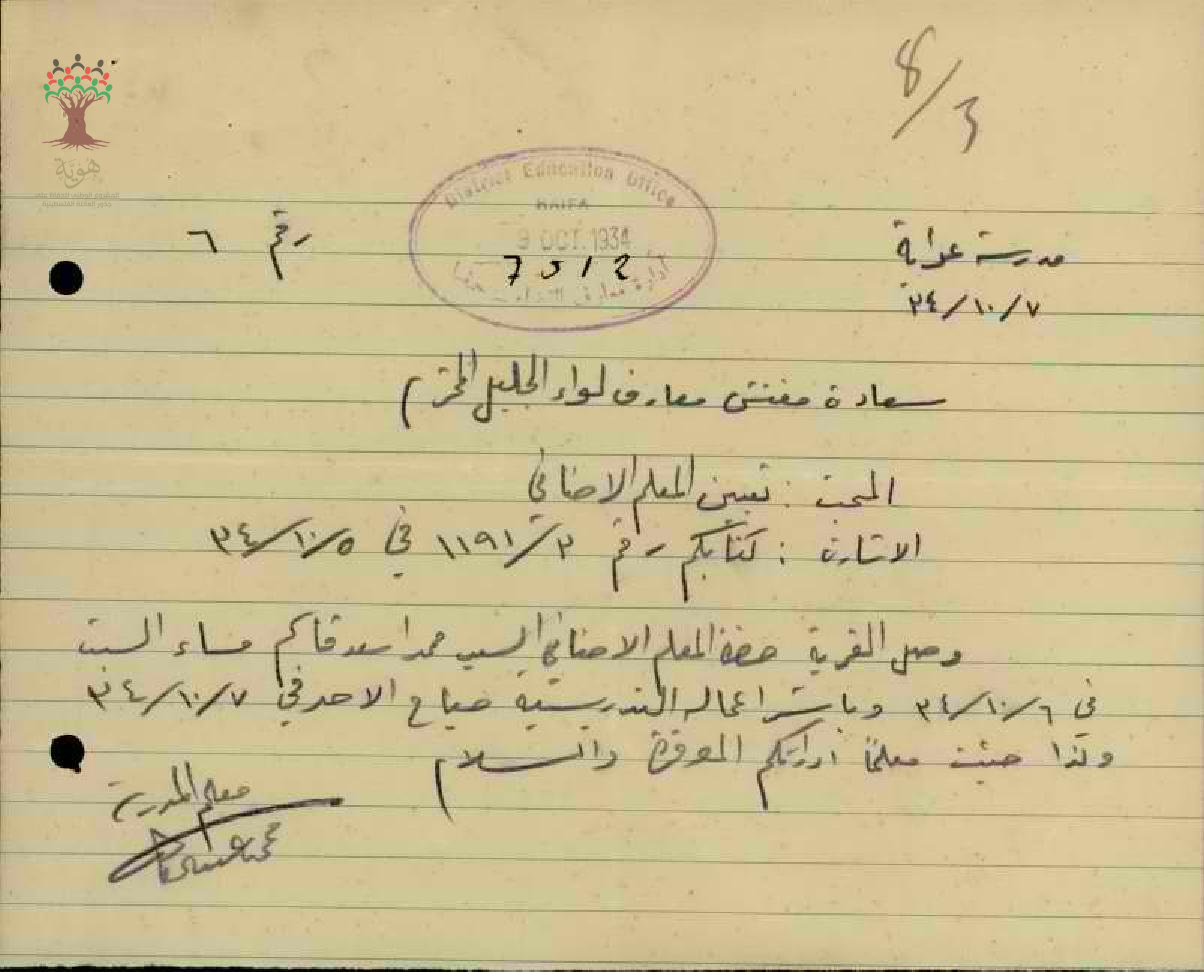 8/3
هوية
District Education Office
HAIFA
9 OCT. 1934
7512
إدارة معارف اللواء – حيفا
مدرسة عرابة
رقم ٦
٣٤/١٠/٧
سعادة مفتش معارف لواء الجليل المحترم
المبحث : تعيين المعلم الاضافي
الاشارة : كتابكم رقم ١١٩١/٣ في ٣٤/١٠/٥
وصل القرية حضرة المعلم الاضافي السيد محمد اسعد قاسم مساء السبت
في ٣٤/١٠/٦ وباشر اعماله التدريسية صباح الاحد في ٣٤/١٠/٧
ولذا جئت معلماً ادارتكم الموقرة والسلام
معلم المدرسة